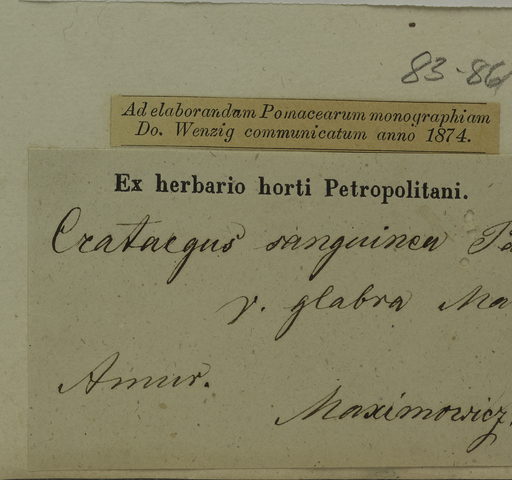 83-86
Ad elaborandam Pomacearum monographiam
Do. Wenzig communicatum anno 1874.
Ex herbario horti Petropolitani.
Crataegus sanguinea Pa
v. glabra Ma
Amur.
Maximowicz.